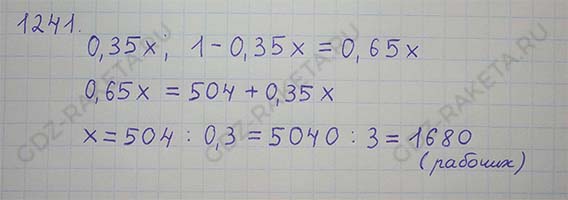 1241.
0,35x; 1-0,35x=0,65x
0,65x = 504+0,35x
x=504 : 0,3 = 5040 : 3 = 1680
(рабочих)
GDZ-RAKETA.RU
GDZ-RAKETA.RU
GDZ-RAKETA.RU